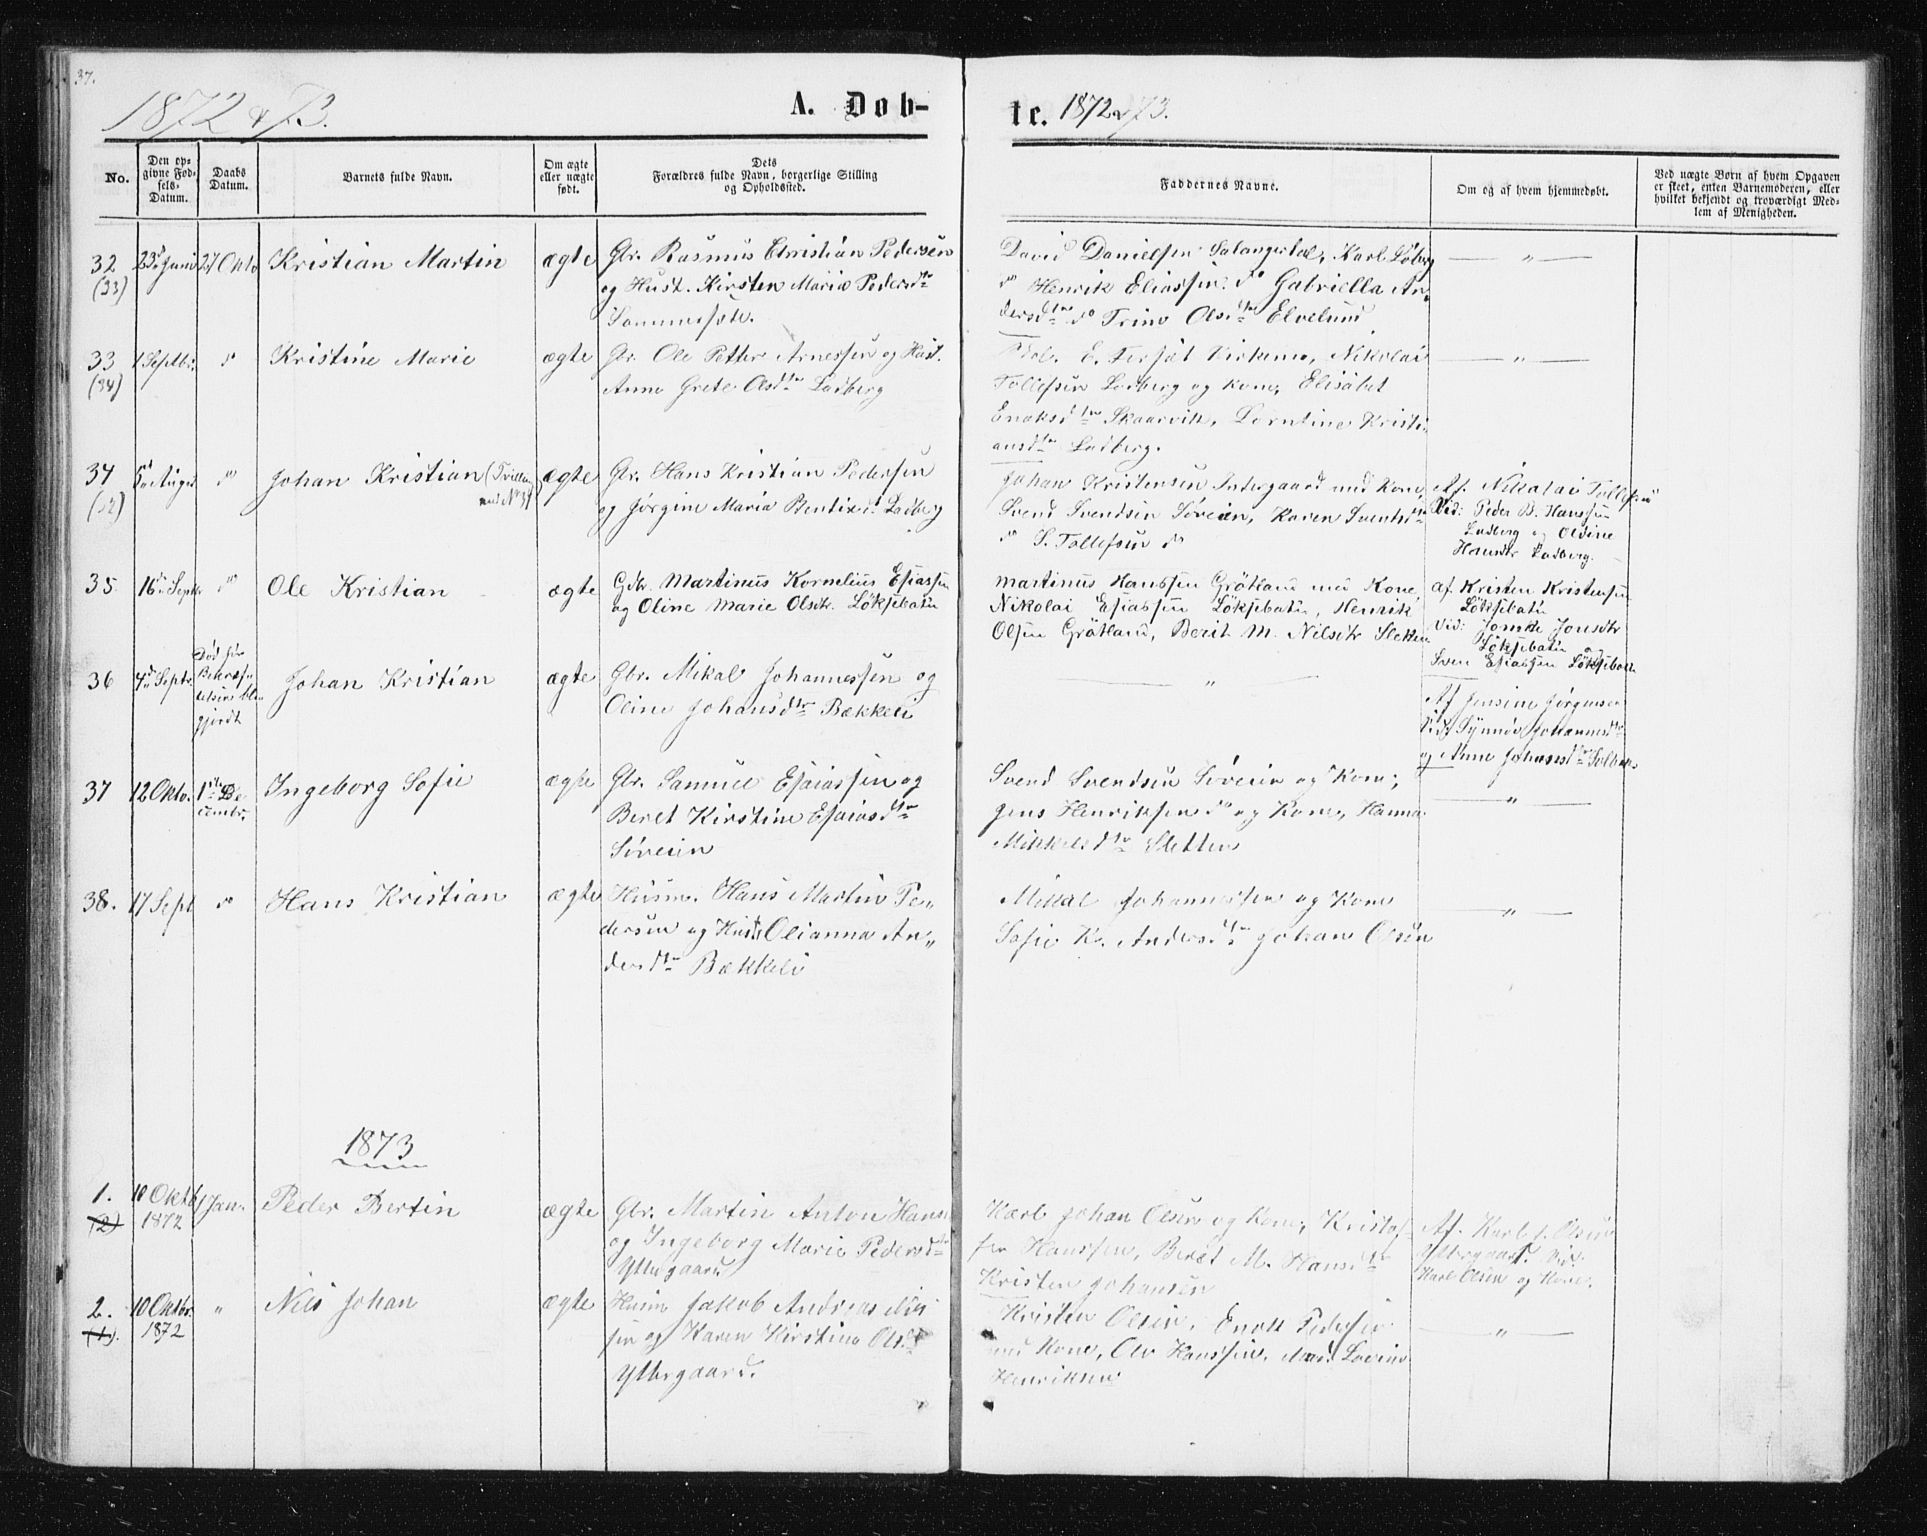 37.
1872 & 73.
A. Døb-
te. 1872 & 73.
No.
Den op-
givne Fød-
sels-
Datum.
Daabs
Datum.
Barnets fulde Navn.
Om ægte
eller uægte
født.
Dets
Forældres fulde Navn, borgerlige Stilling
og Opholdssted.
Faddernes Navne.
Om og af hvem hjemmedøbt.
Ved uægte Børn af hvem Opgaven
er skeet, enten Barnemoderen, eller
hvilket bekjendt og troværdigt Med-
lem af Menigheden.
32
(33)
23de Juni
27 Okto
Kristian Martin
ægte
Gbr. Rasmus Christian Pedersen
og Hust. Kirsten Maria Pedersdtr
Sommersæt.
David Danielsen Salangsdal, Karl Løberg
do Henrik Eliassen do Gabriella An-
dersdtr do Trine Olsdtr Elvelund
— " —
33
(34)
1 Septbr.
do
Kristine Marie
ægte
Gbr. Ole Petter Arnessen og Hust.
Anne Grete Olsdtr Ladberg
E. Nikolai
Tollefsen Ladberg og Kone, Elisabet
Enoksdtr Skaarvik, Dorntine Kristi-
ansdtr Ladberg.
— " —
34
(32)
5te August
do
Johan Kristian (Tvilling
ægte
Gbr. Hans Kristian Pedersen
og Jørgine Maria Bentixd. Ladberg
Johan Kristensen Indergaard med Kone,
Svend Svendsen Søveien, Karen Svendsdtr
do S. Tollefsen do
Af. Nikolai Tollefsen
Vid: Peder B. Hanssen
Ladberg og Oldine
Hansdtr Ladberg.
35.
16de Septr
do
Ole Kristian
ægte
Gdbr. Martinus Kornelius Esiassen
og Oline Marie Olsdtr. Løksebatn
Martinus Hanssen Grøtland med Kone,
Nikolai Esiassen Løksebatn, Henrik
Olsen Grøtland, Berit M. Nilsdtr Sletten
af Kristen Kristensen
Løksebatn
Vid: Jonsdtr
Løksebatn og
Sven Esiassen Løksebatn
36
4de Septr.
Død før
Bekræf-
telsen blev
gjordt
Johan Kristian
ægte
Gbr. Mikal Johannessen og
Oline Johansdtr Bækkeli
— " —
Af Jensine Jørgensen
Vid. Synnøv Johannesdtr
og Anne Johansdtr Solbak
37
12 Okto.
1ste De-
cembr.
Ingeborg Sofie
ægte
Gbr. Samuel Esaiassen og
Beret Kirstine Esaiasdtr
Søveien
Svend Svendsen Søveien og Kone;
Jens Henriksen do og Kone, Hanna
Mikkelsdtr Sletten
— " —
38.
17 Sept
do
Hans Kristian
ægte
Husm. Hans Martin Pe-
dersen og Hust. Olianna An-
dersdtr Bækkeli
Mikal Johannessen og Kone
Sofie K. Andersdtr Johan Olsen
— " —
1873
1.
(2)
10 Oktb
1872
1 Jan.
Peder Bertin
ægte
Gbr. Martin Anton Hans
og Ingeborg Marie Pedersdtr
Yttergaard
Karl Johan Olsen og Kone, Kristof-
fer Hanssen, Beret M. Hansdtr
Kristen Johansen
Af. Karl J. Olsen
Yttergaard. Vid.
Karl Olsen og Kone.
2.
(1).
10 Oktbr.
1872
"
Nils Johan
ægte
Husm Jakob Andreas Nils
sen og Karen Kirstine Olsd
Yttergaard.
Kristen Olsen, Enok Pedersen
med Kone, Ole Hanssen, Mari Lovine
Henriksen
— " —